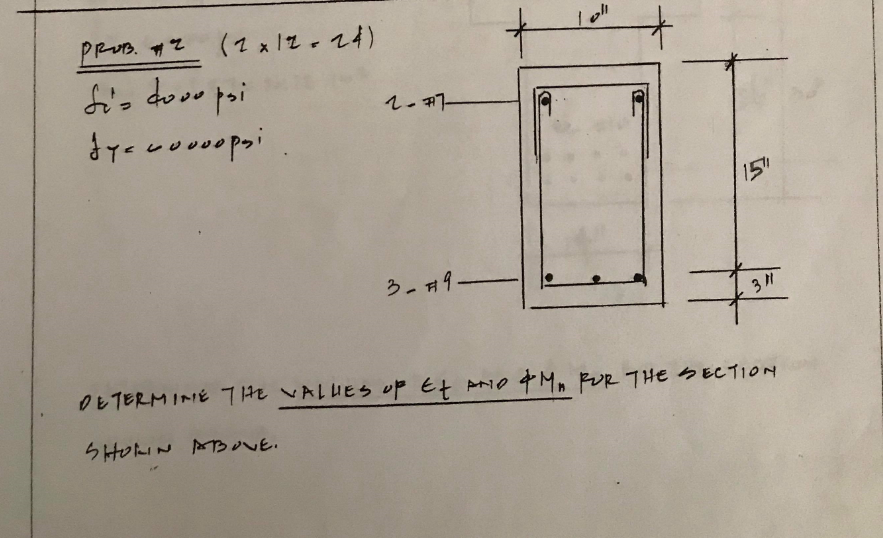 10"
PROB. #2 (2 x 12 = 24)
fc' = 4000 psi
2 - #7
fy = 60000 psi.
15"
3 - #9
3"
DETERMINE THE VALUES OF Ɛt AND ɸMn FOR THE SECTION
SHOWN ABOVE.